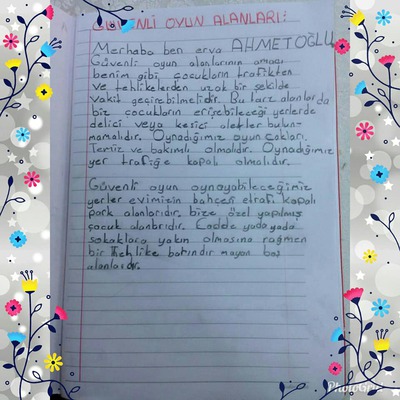 GÜVENLİ OYUN ALANLARI:
Merhaba ben erva AHMETOĞLU
Güvenli oyun alanlarının amacı
benim gibi, çocukların trafikten
ve tehlikelerden uzak bir şekilde
vakit geçirebilmelidir. Bu tarz alanlarda
biz çocukların erişebileceği yerlerde
delici veya kesici aletler bulun
mamalıdır. Oynadığımız oyun çokları.
Temiz ve bakımlı olmalıdır. Oynadığımız
yer trafiğe kapalı olmalıdır.
Güvenli oyun oynayabileceğimiz
yerler evimizin bahçesi etrafı kapalı
park alanlarıdır, bize özel yapılmış
çocuk alanlarıdır. Cadde yada yada
sokaklara yakın olmasına rağmen
bir tehlike barındır mayan boş
alanlardır.
PhotoGrid